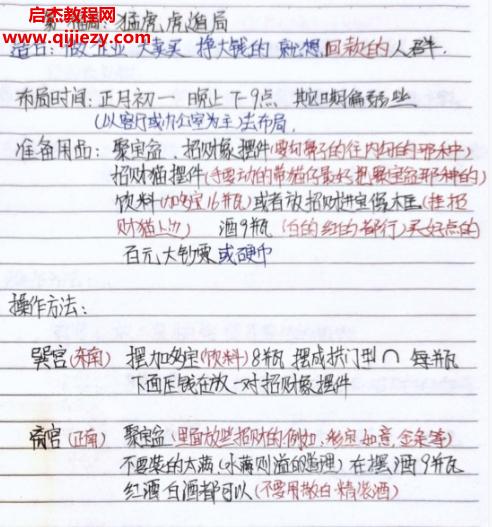 启杰教程网
www.qijiezy.com
第六局: 猛虎 虎逍局
适合: 做企业 大卖买 挣大钱的 就想回款的人群.
布局时间: 正月初一 晚上7-9点 其它日期偏弱些
(以客厅或办公室为主)去布局.
准备用品: 聚宝盆. 招财象摆件(要勾鼻子的往内勾的那种)
招财猫摆件(手要动的带猫仔最好把聚宝盆那种的)
饮料(加多宝16瓶)或者放招财进宝
财猫上边) 酒9瓶(白的红的都行)买好点的
百元大钞票或硬币
操作方法:
巽宫(东南) 摆加多宝(饮料)8瓶 摆成拱门型∩ 每瓶
下面压钱在放一对招财象摆件
离宫(正南) 聚宝盆(里面放些招财的例如. 彩宝如意, 金条等)
不要装的太满(水满则溢的道理) 在摆酒9瓶
红酒白酒都可以(不要用散白精装酒)